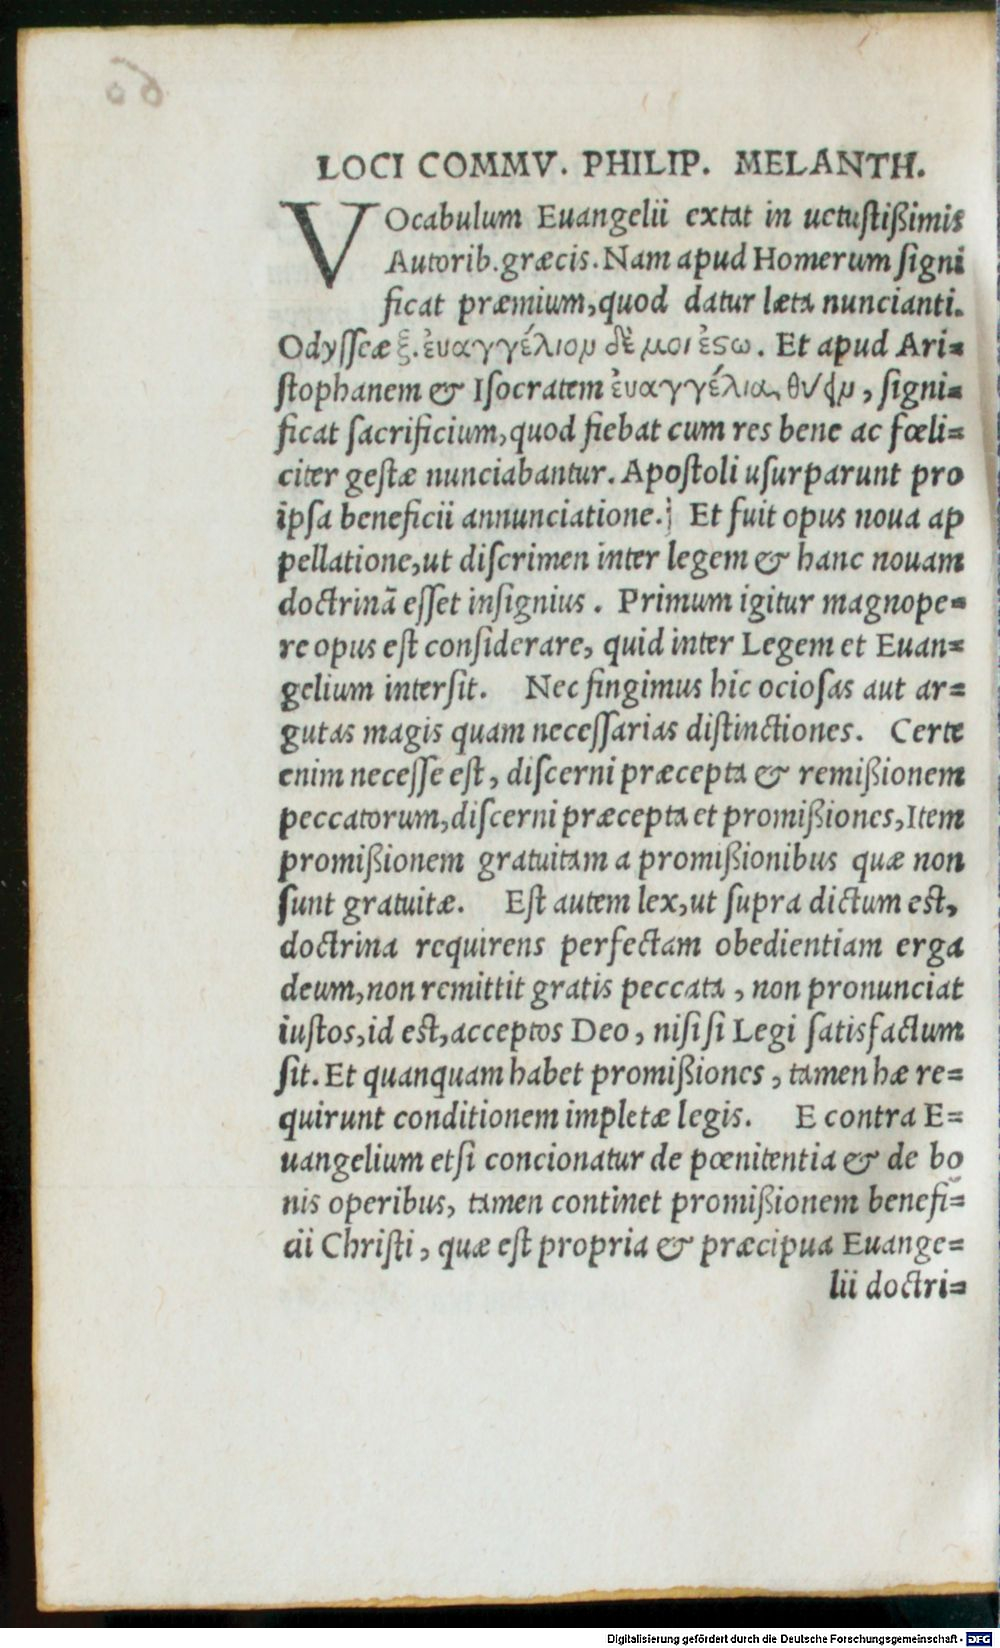 60
LOCI COMMV. PHILIP. MELANTH.
VOcabulum Euangelii extat in uetustißimis
Autorib. græcis. Nam apud Homerum signi
ficat præmium, quod datur læta nuncianti.
Odysseæ ξ. ἐυαγγέλιον δὲ μοι ἐςω. Et apud Ari=
stophanem & Isocratem ἐυαγγέλια θύειν, signi=
ficat sacrificium, quod fiebat cum res bene ac fœli=
citer gestæ nunciabantur. Apostoli usurparunt pro
ipsa beneficii annunciatione. Et fuit opus noua ap
pellatione, ut discrimen inter legem & hanc nouam
doctrinã esset insignius. Primum igitur magnope=
re opus est considerare, quid inter Legem et Euan=
gelium intersit. Nec fingimus hic ociosas aut ar=
gutas magis quam necessarias distinctiones. Certe
enim necesse est, discerni præcepta & remißionem
peccatorum, discerni præcepta et promißiones, Item
promißionem gratuitam a promißionibus quæ non
sunt gratuitæ. Est autem lex, ut supra dictum est,
doctrina requirens perfectam obedientiam erga
deum, non remittit gratis peccata, non pronunciat
iustos, id est, acceptos Deo, nisi si Legi satisfactum
sit. Et quanquam habet promißiones, tamen hæ re=
quirunt conditionem impletæ legis. E contra E=
uangelium etsi concionatur de pœnitentia & de bo
nis operibus, tamen continet promißionem benefi=
cii Christi, quæ est propria & præcipua Euange=
lii doctri=
Digitalisierung gefördert durch die Deutsche Forschungsgemeinschaft - DFG